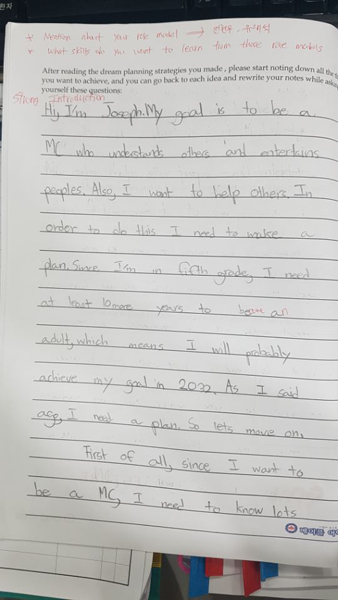 * Mention about your role model →
* What skills do you want to learn from those role models
After reading the dream planning strategies you made, please start noting down all the
you want to achieve, and you can go back to each idea and rewrite your notes while
yourself these questions:
Strong Introduction
Hy I'm Joseph. My goal is to be a
MC who understants others and entertains
peoples. Also, I want to help others. In
order to do this I need to make a
plan. Since I'm in fifth grade, I need
at least 10more years to become an
adult, which means I will probably
achieve my goal in 2032. As I said
ago, I need a plan. So lets move on.
First of all, since I want to
be a MC, I need to know lots